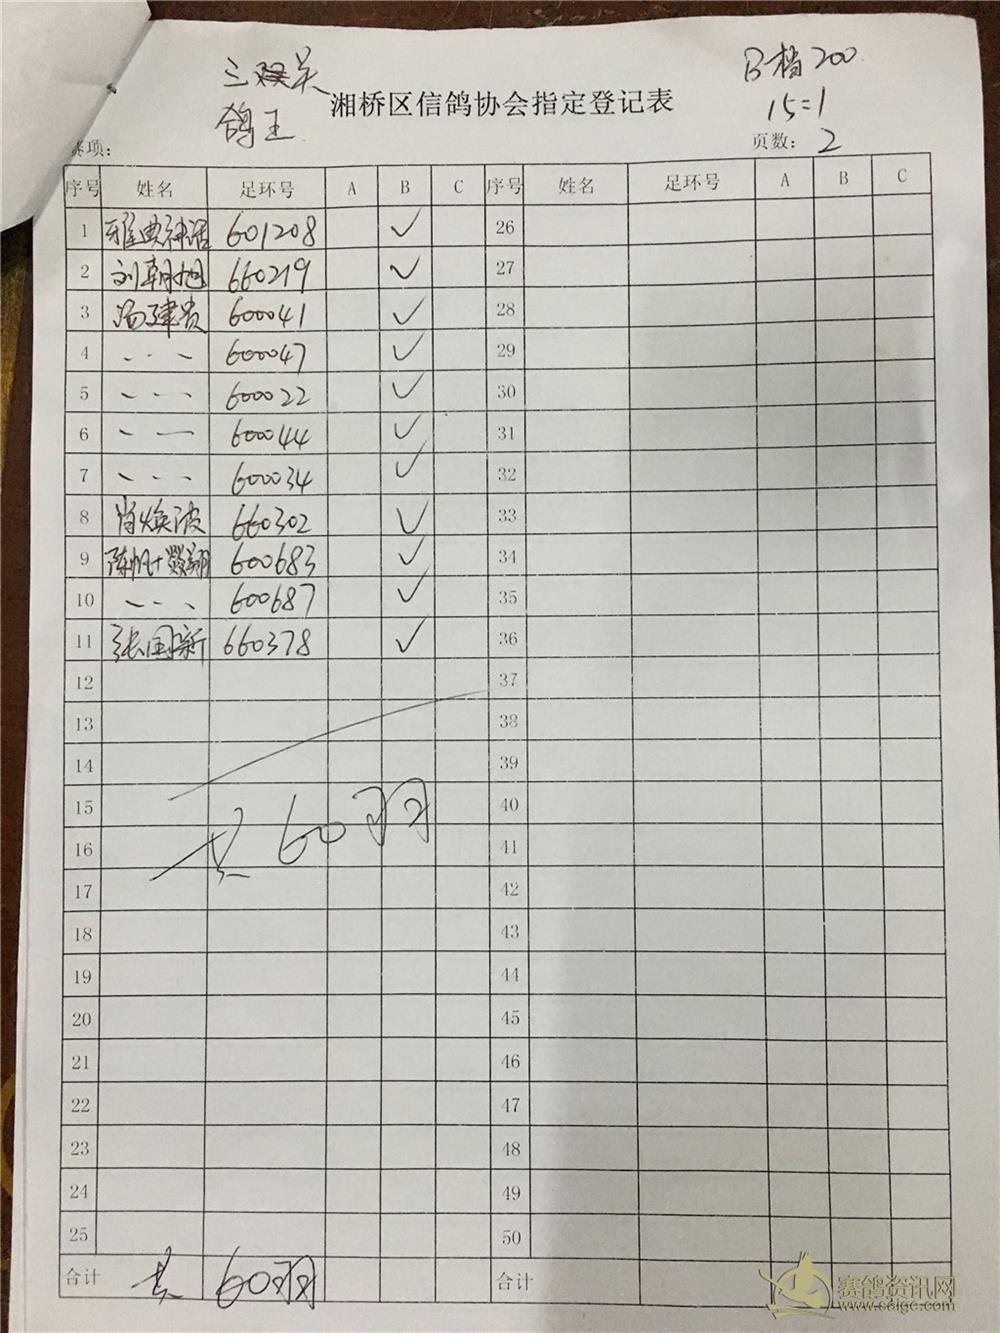 三关
鸽王
B档200
15=1
湘桥区信鸽协会指定登记表
赛项：
页数：2
序号 姓名 足环号 A B C 序号 姓名 足环号 A B C
1 雅典神话 601208 ✓ 26
2 刘朝旭 660219 ✓ 27
3 汤建贵 600041 ✓ 28
4 、、、 600047 ✓ 29
5 、、、 600022 ✓ 30
6 、— 600044 ✓ 31
7 、、、 600034 ✓ 32
8 肖焕波 660302 ✓ 33
9 600683 ✓ 34
10 、、、 600687 ✓ 35
11 张国新 660378 ✓ 36
12 37
13 38
14 39
15 40
16 共60羽 41
17 42
18 43
19 44
20 45
21 46
22 47
23 48
24 49
25 50
合计 共60羽 合计
赛鸽资讯网
www.saige.com